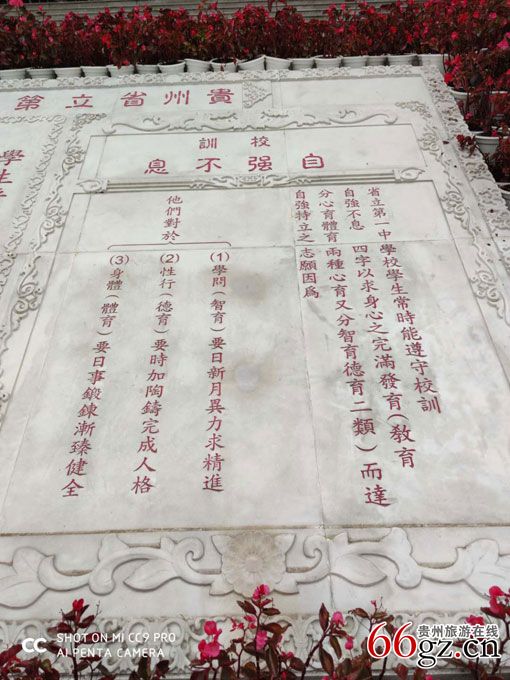 貴州省立第
校訓
自强不息
省立第一中學校學生常時能遵守校訓
自强不息 四字以求身心之完滿發育(教育
分心育體育兩種心育又分智育德育二類)而達
自強特立之志願因爲
他們對於
(1)學問(智育)要日新月異力求精進
(2)性行(德育)要時加陶鑄完成人格
(3)身體(體育)要日事鍛鍊漸臻健全
學生
SHOT ON MI CC9 PRO
AI PENTA CAMERA
贵州旅游在线
66gz.cn